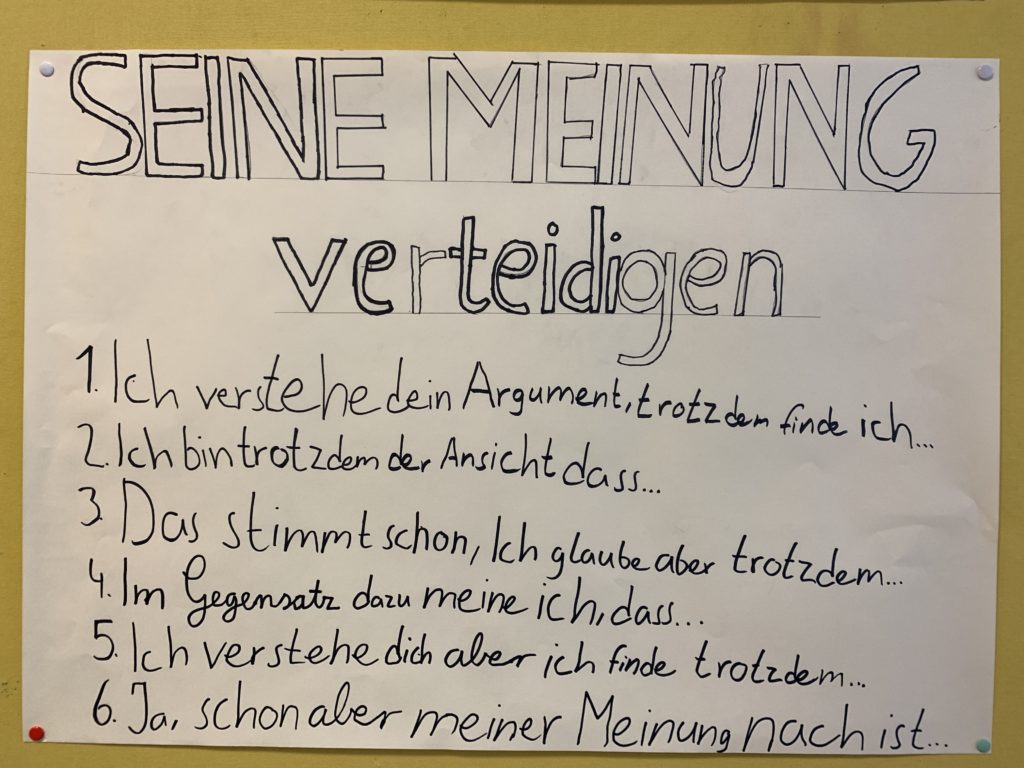 SEINE MEINUNG
verteidigen
1. Ich verstehe dein Argument, trotzdem finde ich...
2. Ich bin trotzdem der Ansicht dass...
3. Das stimmt schon, Ich glaube aber trotzdem...
4. Im Gegensatz dazu meine ich, dass...
5. Ich verstehe dich aber ich finde trotzdem...
6. Ja, schon aber meiner Meinung nach ist...